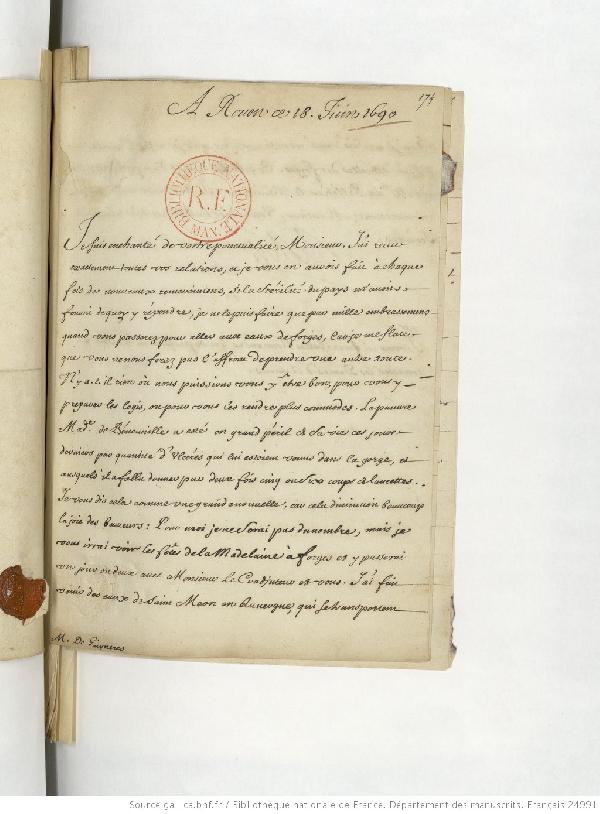 174
A Rouen ce 18. Juin 1690
BIBLIOTHEQUE NATIONALE MAN.
R.F.
Je suis enchanté de vostre ponctualité, Monsieur. J'ai receu
exactement toutes vos relations, et je vous en aurois fait à chaque
fois de nouveaux remerciemens, si la stérilité du pays m'avoit
fourni dequoy y répondre, je ne le puis faire que par mille embrassemens
quand vous passerez pour aller aux eaux de forges, car je me flate
que vous ne nous ferez pas l'affront de prendre une autre route.
N'y a t-il rien où nous puissions vous y être bon, pour vous y
préparer les logis, ou pour vous les rendre plus commodes. La pauvre
Mad.e de a esté en grand péril de sa vie ces jours
derniers par quantité d'Ulcéres qui lui estoient venus dans la gorge, et
ausquels il a fallu donner par deux fois cinq ou six coups de lancettes.
Je vous dis cela comme une grand nouvelle, car cela diminuera beaucoup
la joie des beuveurs: Pour moi je ne serai pas du nombre, mais je
vous irrai voir les fêtes de la Madelaine à forges et y passerai
un jour ou deux avec Monsieur Le Coadjuteur et vous. J'ai fait
venir des eaux de Saint Maon en Auvergne, qui se transportent
M. De Gaignieres
Source gallica.bnf.fr / Bibliothèque nationale de France. Département des manuscrits. Français 24991